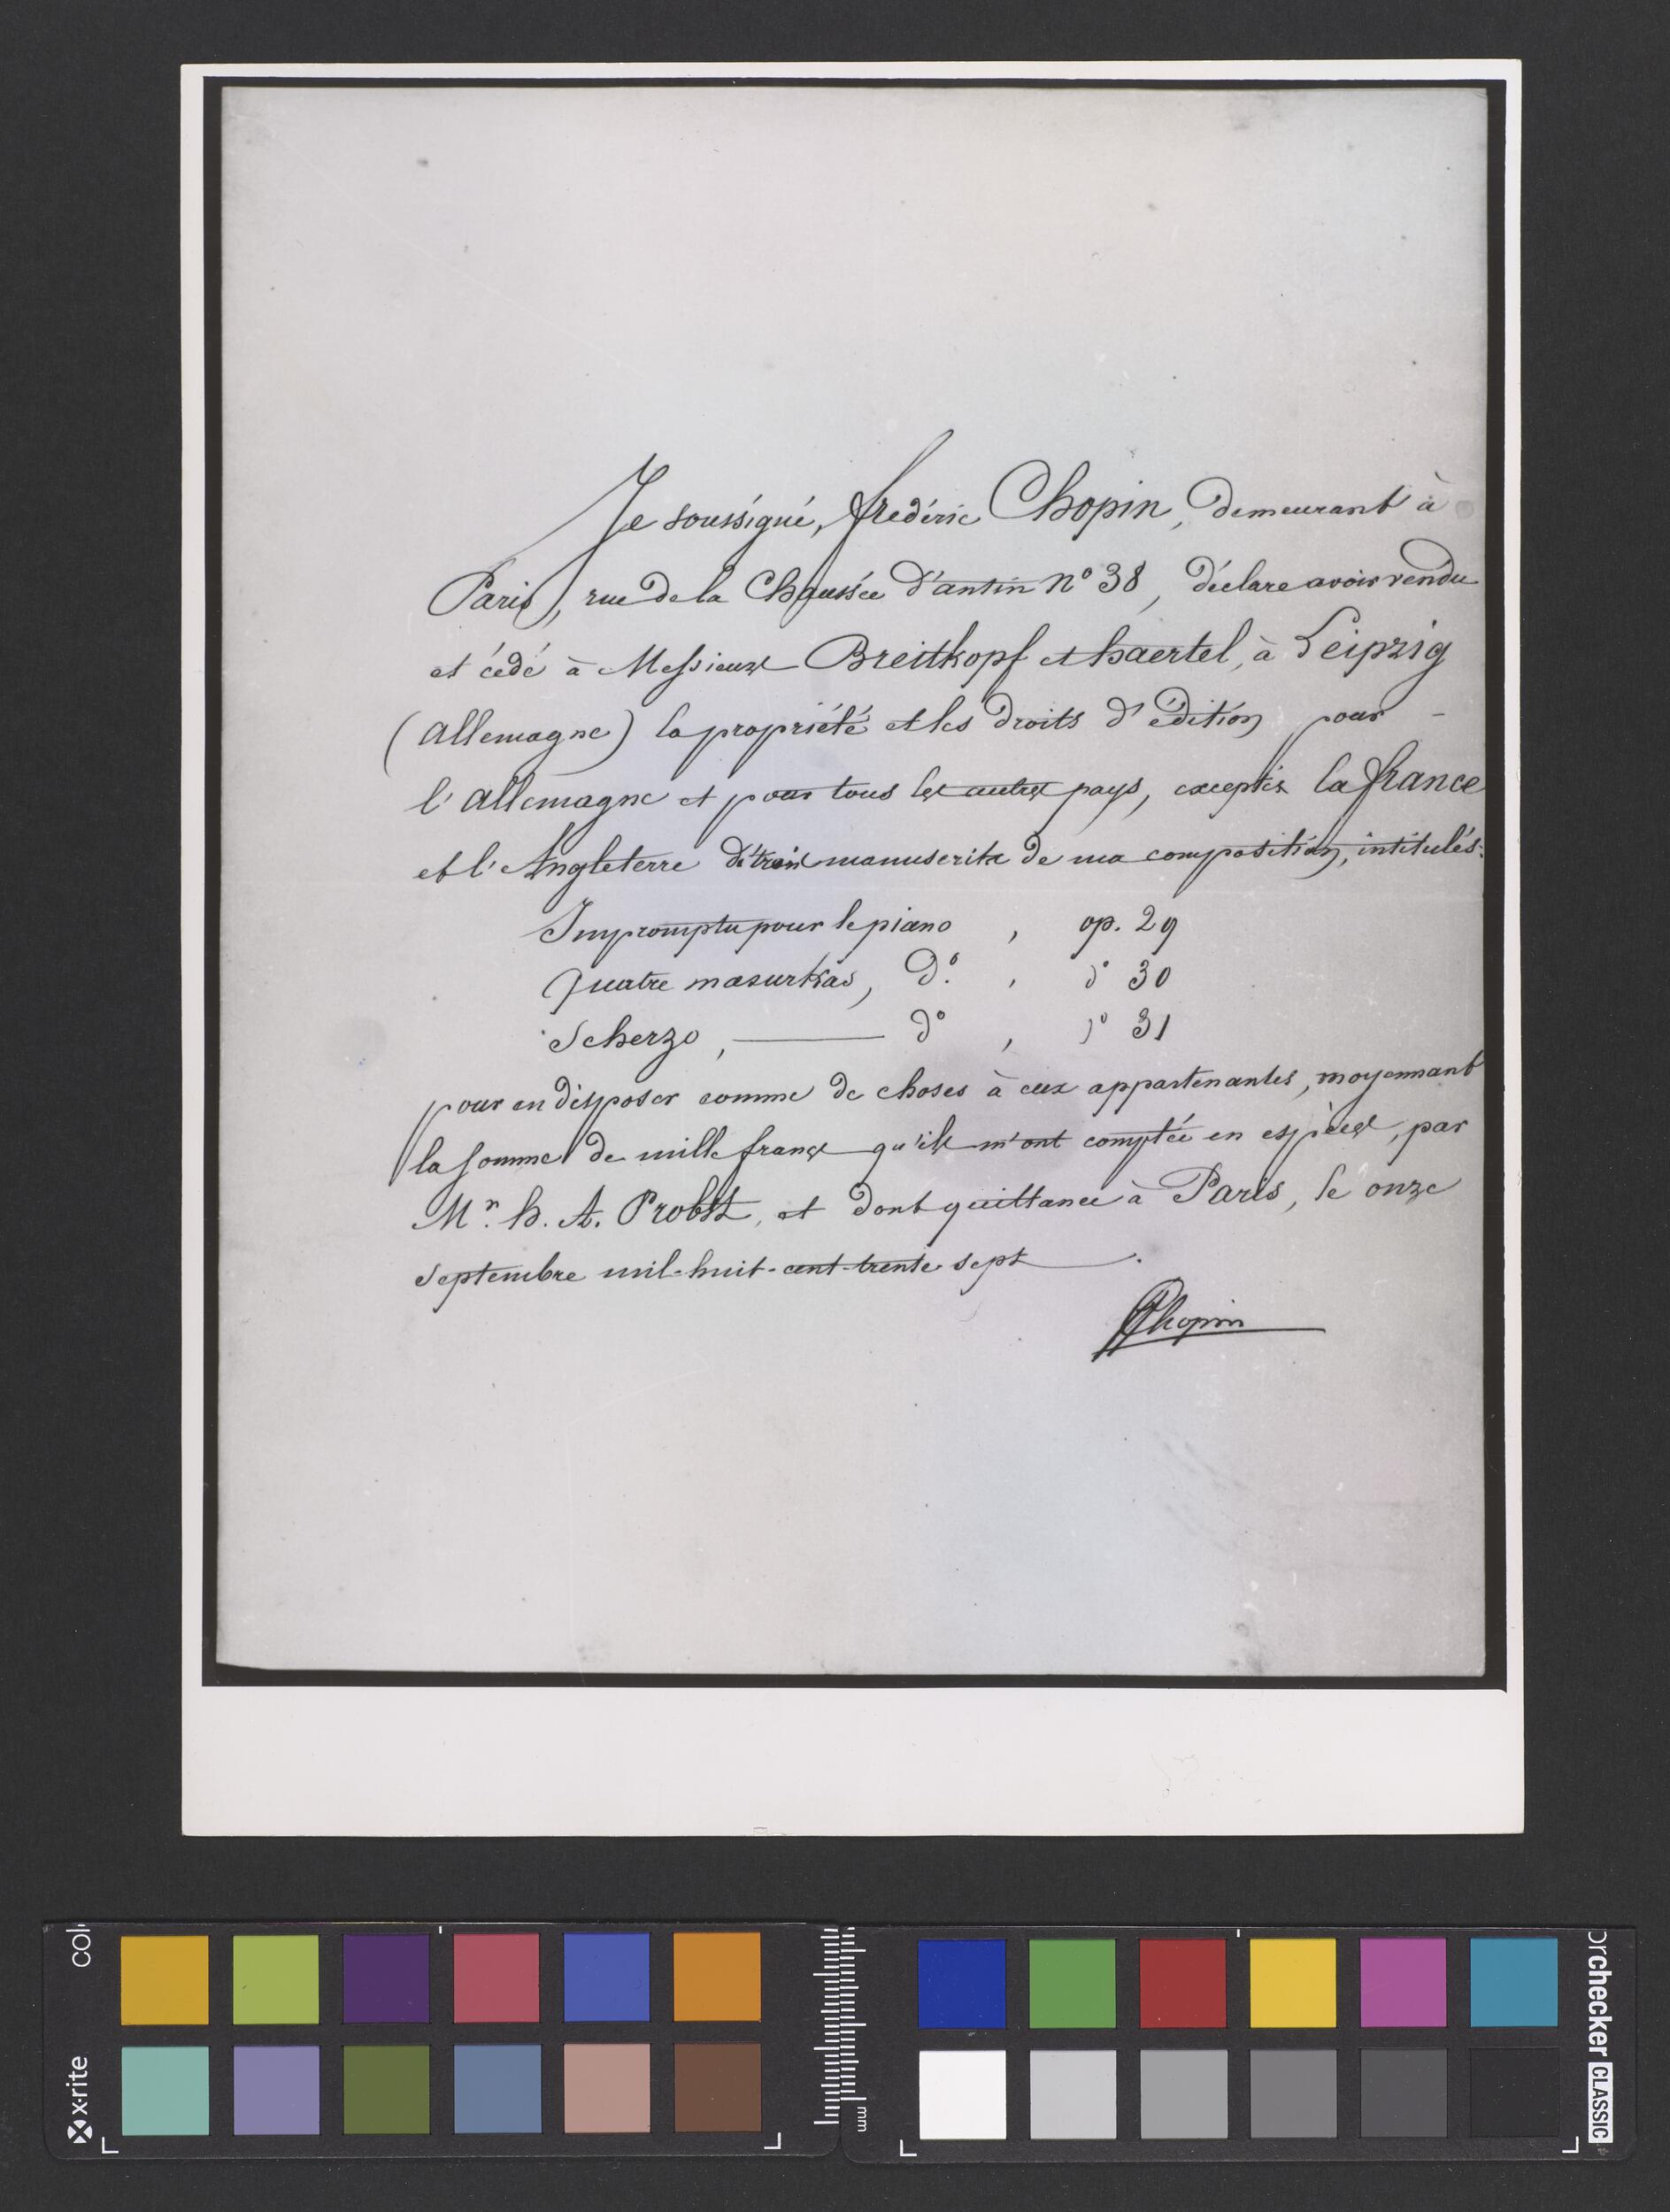 Je soussigné, frédéric Chopin, demeurant à
Paris, rue de la Chaussée d'antin n° 38, déclare avoir vendu
et cédé à Messieurs Breitkopf et haertel, à Leipzig
(allemagne) la propriété et les droits d'édition pour -
l'allemagne et pour tous les autres pays, exceptés la france
et l'Angleterre de trois manuscrits de ma composition, intitulés:
Impromptu pour le piano , op. 29
Quatre masurkas, d°. , d° 30
Scherzo, —— d° , d° 31
pour en disposer comme de choses à eux appartenantes, moyennant
la somme de mille francs qu'ils m'ont comptée en espèces, par
Mr. h. A. Probst, et dont quittance à Paris, le onze
Septembre mil-huit-cent-trente sept —.
FChopin
x-rite
col
mm
orchecker CLASSIC